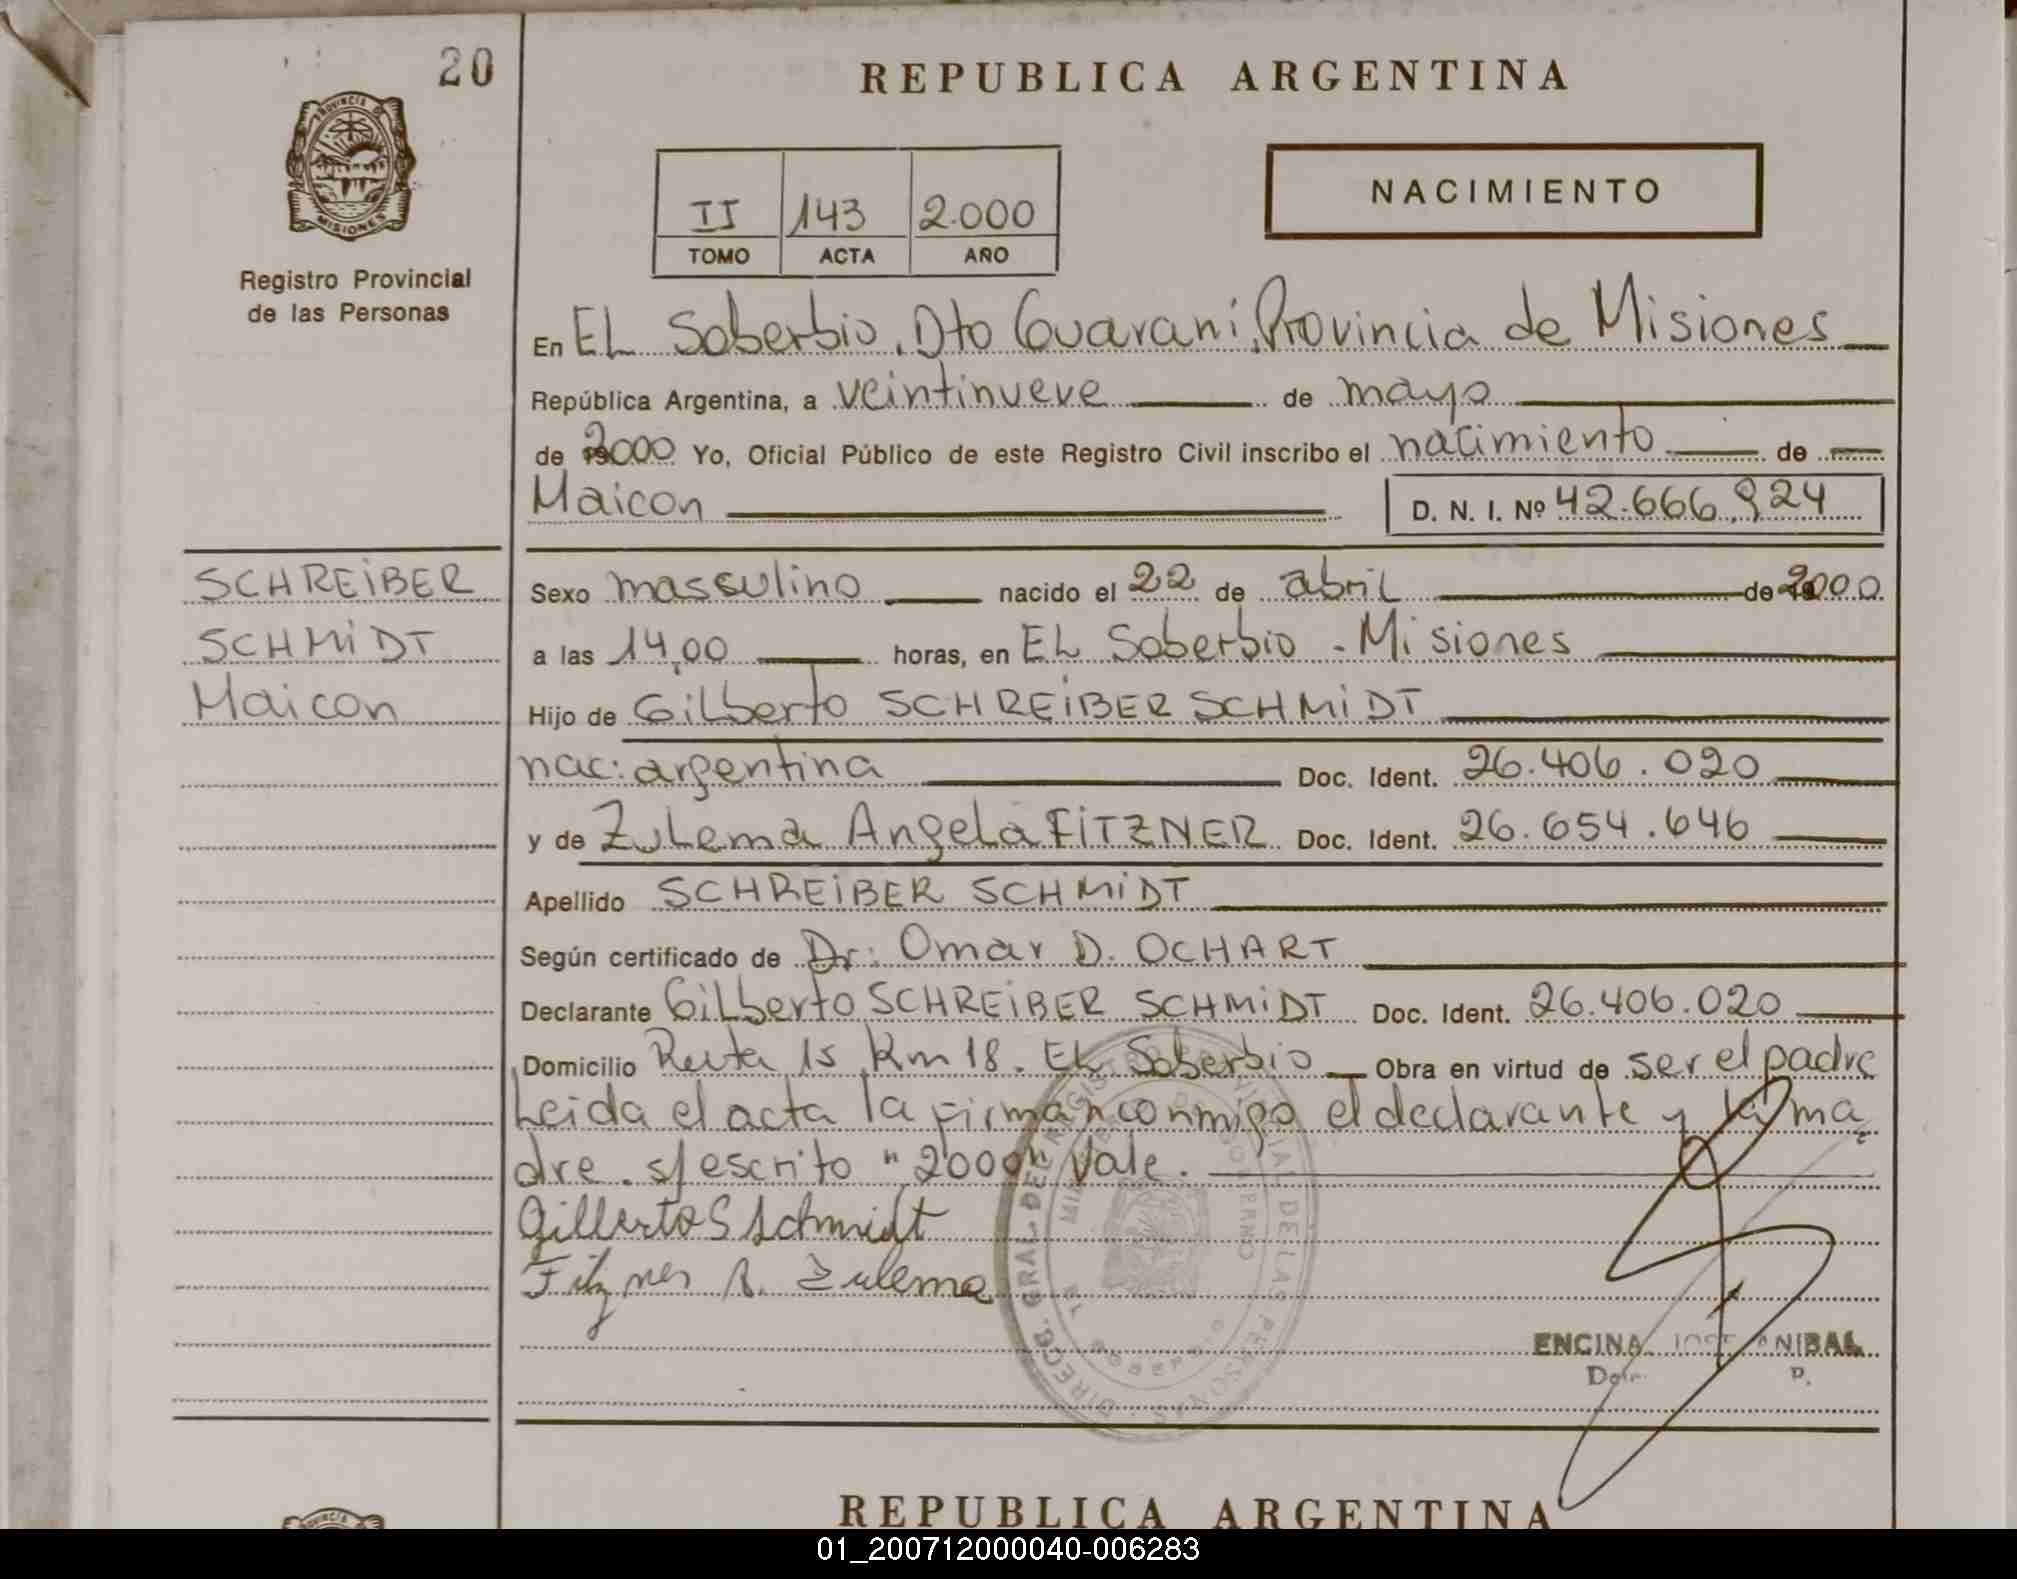 20
REPUBLICA ARGENTINA
PROVINCIA DE
MISIONES
Registro Provincial
de las Personas
II 143 2.000
TOMO ACTA AÑO
NACIMIENTO
En EL Soberbio, Dto Guarani, Provincia de Misiones
República Argentina, a veintinueve de mayo
de 2000 Yo, Oficial Público de este Registro Civil inscribo el nacimiento de
Maicon D. N. I. Nº 42.666.924
SCHREIBER
SCHMIDT
Maicon
Sexo masculino nacido el 22 de abril de 2000
a las 14,00 horas, en EL Soberbio - Misiones
Hijo de Gilberto SCHREIBER SCHMIDT
nac: argentina Doc. Ident. 26.406.020
y de Zulema Angela FITZNER Doc. Ident. 26.654.646
Apellido SCHREIBER SCHMIDT
Según certificado de Dr: Omar D. OCHART
Declarante Gilberto SCHREIBER SCHMIDT Doc. Ident. 26.406.020
Domicilio Ruta 15 Km 18. EL Soberbio Obra en virtud de ser el padre
Leida el acta la firman conmigo el declarante y la ma
dre. s/escrito "2000" Vale.
Gilberto S Schmidt
Fitzner A. Zulema
DIRECC. GRAL. DEL REGISTRO PROVINCIAL DE LAS PERSONAS
GOBIERNO
ENCINA JOSE ANIBAL
REPUBLICA ARGENTINA
01_200712000040-006283